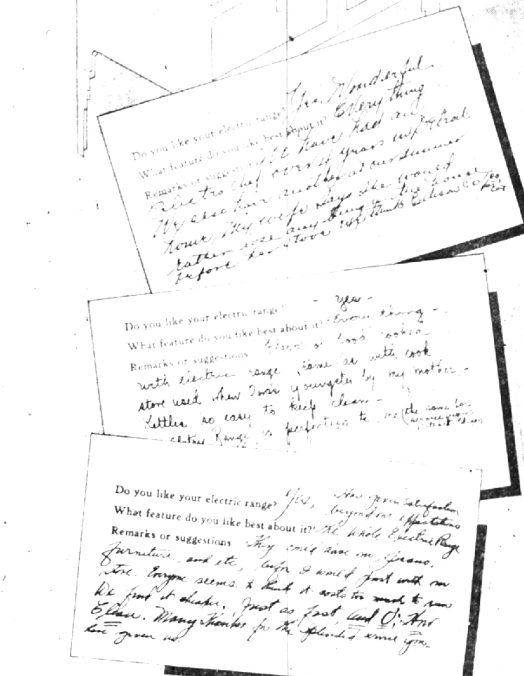 Do you like your electric range? Yes. Wonderful
What feature do you like best about it? Everything
Remarks or suggestions We have had an
Electro Chef over 4 years in Detroit
We also have another at our summer
home. My wife says she would
rather lose any thing in the house
before her stove. We think Edison Co
Do you like your electric range? - Yes -
What feature do you like best about it? Every thing -
Remarks or suggestions food cooked
with electric range, same as with cook
stove used when I was youngster by my mother -
Kettles so easy to keep clean -
Range is perfection to me
Do you like your electric range? Yes, Has given satisfaction
beyond our expectations
What feature do you like best about it? The Whole Electric Range
Remarks or suggestions They could have my piano,
furniture, and etc, before I would part with my
stove. Everyone seems to think it costs too much to run
We find it cheaper. Just as fast and O! How
Clean. Many thanks for the splendid service you
have given us